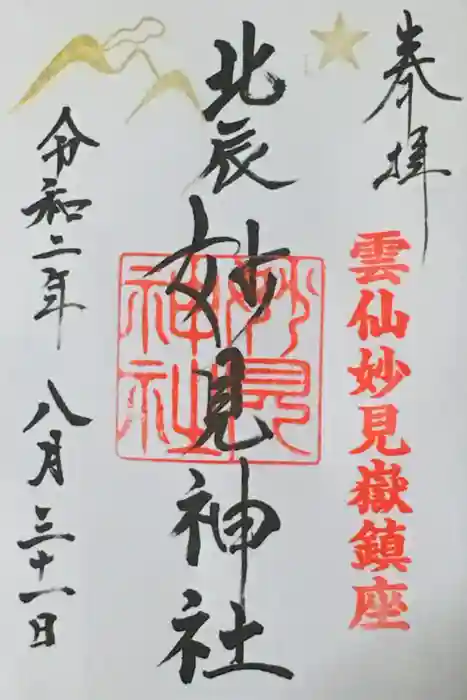 奉拝
雲仙妙見嶽鎮座
北辰
妙見神社
妙見
神社
令和二年
八月三十一日